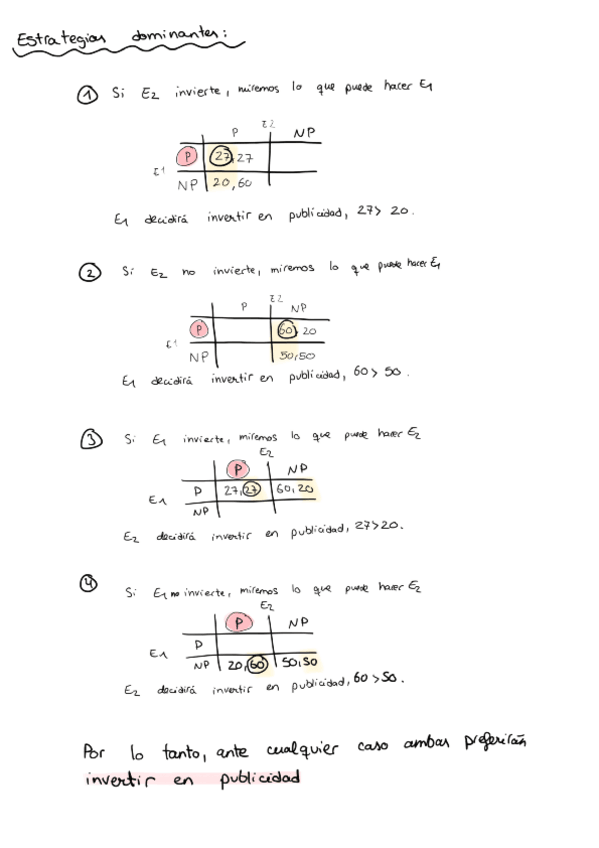 Estrategias dominantes:
① Si E2 invierte, miremos lo que puede hacer E1
E2
P NP
E1 P 27, 27
NP 20, 60
E1 decidirá invertir en publicidad, 27 > 20.
② Si E2 no invierte, miremos lo que puede hacer E1
E2
P NP
E1 P 60, 20
NP 50, 50
E1 decidirá invertir en publicidad, 60 > 50.
③ Si E1 invierte, miremos lo que puede hacer E2
E2
P NP
E1 P 27, 27 60, 20
NP
E2 decidirá invertir en publicidad, 27 > 20.
④ Si E1 no invierte, miremos lo que puede hacer E2
E2
P NP
E1 P
NP 20, 60 50, 50
E2 decidirá invertir en publicidad, 60 > 50.
Por lo tanto, ante cualquier caso ambas preferirán
invertir en publicidad